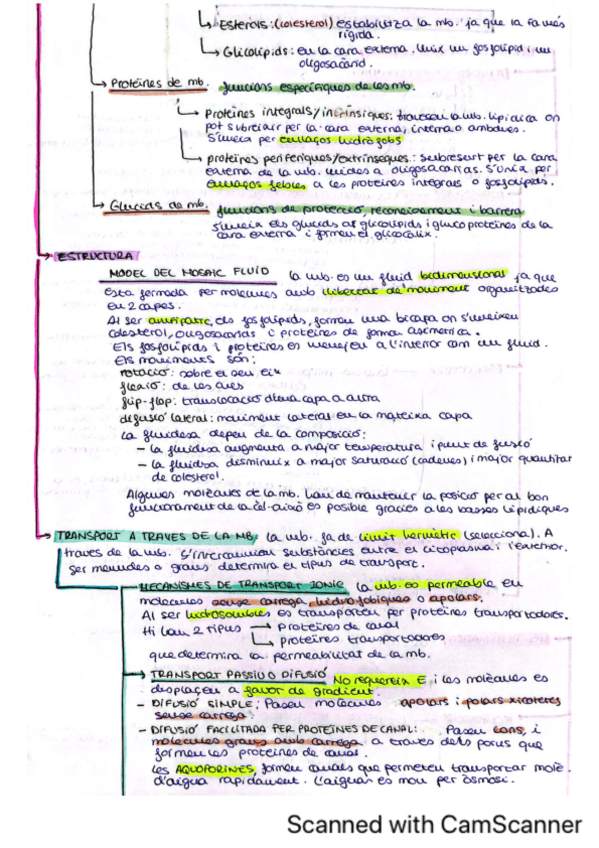 Esterols: (colesterol) estabilitza la mb. ja que la fa més
rígida.
Glicolípids: en la cara externa. Uneix un fosfolípid i un
oligosacàrid.
Proteïnes de mb. funcions específiques de les mb.
Proteïnes integrals/intrínsiques: travessen la mb. lipídica on
pot sobresortir per la cara externa, interna o ambdues.
S'uneix per enllaços hidròfobs
proteïnes perifèriques/extrínseques: sobresurt per la cara
externa de la mb. unides a oligosacàrids. S'uneix per
enllaços febles a les proteïnes integrals o fosfolípids.
Glúcids de mb. funcions de protecció, reconeixement i barrera
s'uneix els glúcids als glicolípids i glucoproteïnes de la
cara externa i formen el glicocàlix.
ESTRUCTURA
MODEL DEL MOSAIC FLUID la mb. es un fluid bidimensional ja que
esta formada per molecules amb llibertat de moviment organitzades
en 2 capes.
Al ser amfipàtic, els fosfolípids, formen una bicapa on s'uneixen
colesterol, oligosacarids i proteïnes de forma asimetrica.
Els fosfolípids i proteïnes es menejen a l'interior com un fluid.
Els moviments són:
rotació: sobre el seu eix
flexió: de les axes
flip-flop: translocació d'una capa a altra
difusió lateral: moviment lateral en la mateixa capa
la fluidesa depen de la composició:
- la fluidesa augmenta a major temperatura i punt de fusció
- la fluidesa disminuix a major saturació (cadenes) i major quantitat
de colesterol.
Algunes molècules de la mb. han de mantenir la posició per al bon
funcionament de la cèl·això es possible gracies a les basses lipídiques
TRANSPORT A TRAVES DE LA MB, la mb. fa de límit hermètic (selecciona). A
través de la mb. s'intercanvien substàncies entre el citoplasma i l'exterior.
Ser menudes o grans determina el tipus de transport.
MECANISMES DE TRANSPORT IONIC la mb. es permeable en
molècules sense carrega, hidrofòbiques o apolars.
Al ser hidrosolubles es transporten per proteïnes transportadores.
Hi han 2 tipus → proteïnes de canal
proteïnes transportadores
que determina la permeabilitat de la mb.
TRANSPORT PASSIU O DIFUSIÓ No requereix E i les molècules es
desplaçen a favor de gradient.
- DIFUSIÓ SIMPLE: Pasen molècules apolars i polars xicotetes
sense carrega.
- DIFUSIÓ FACILITADA PER PROTEÏNES DE CANAL: Pasen ions, i
molècules grans amb carrega a través dels porus que
formen les proteïnes de canal.
les AQUOPORINES, formen canals que permeten transportar molè.
d'aigua rapidament. L'aigua es mou per osmosi.
Scanned with CamScanner